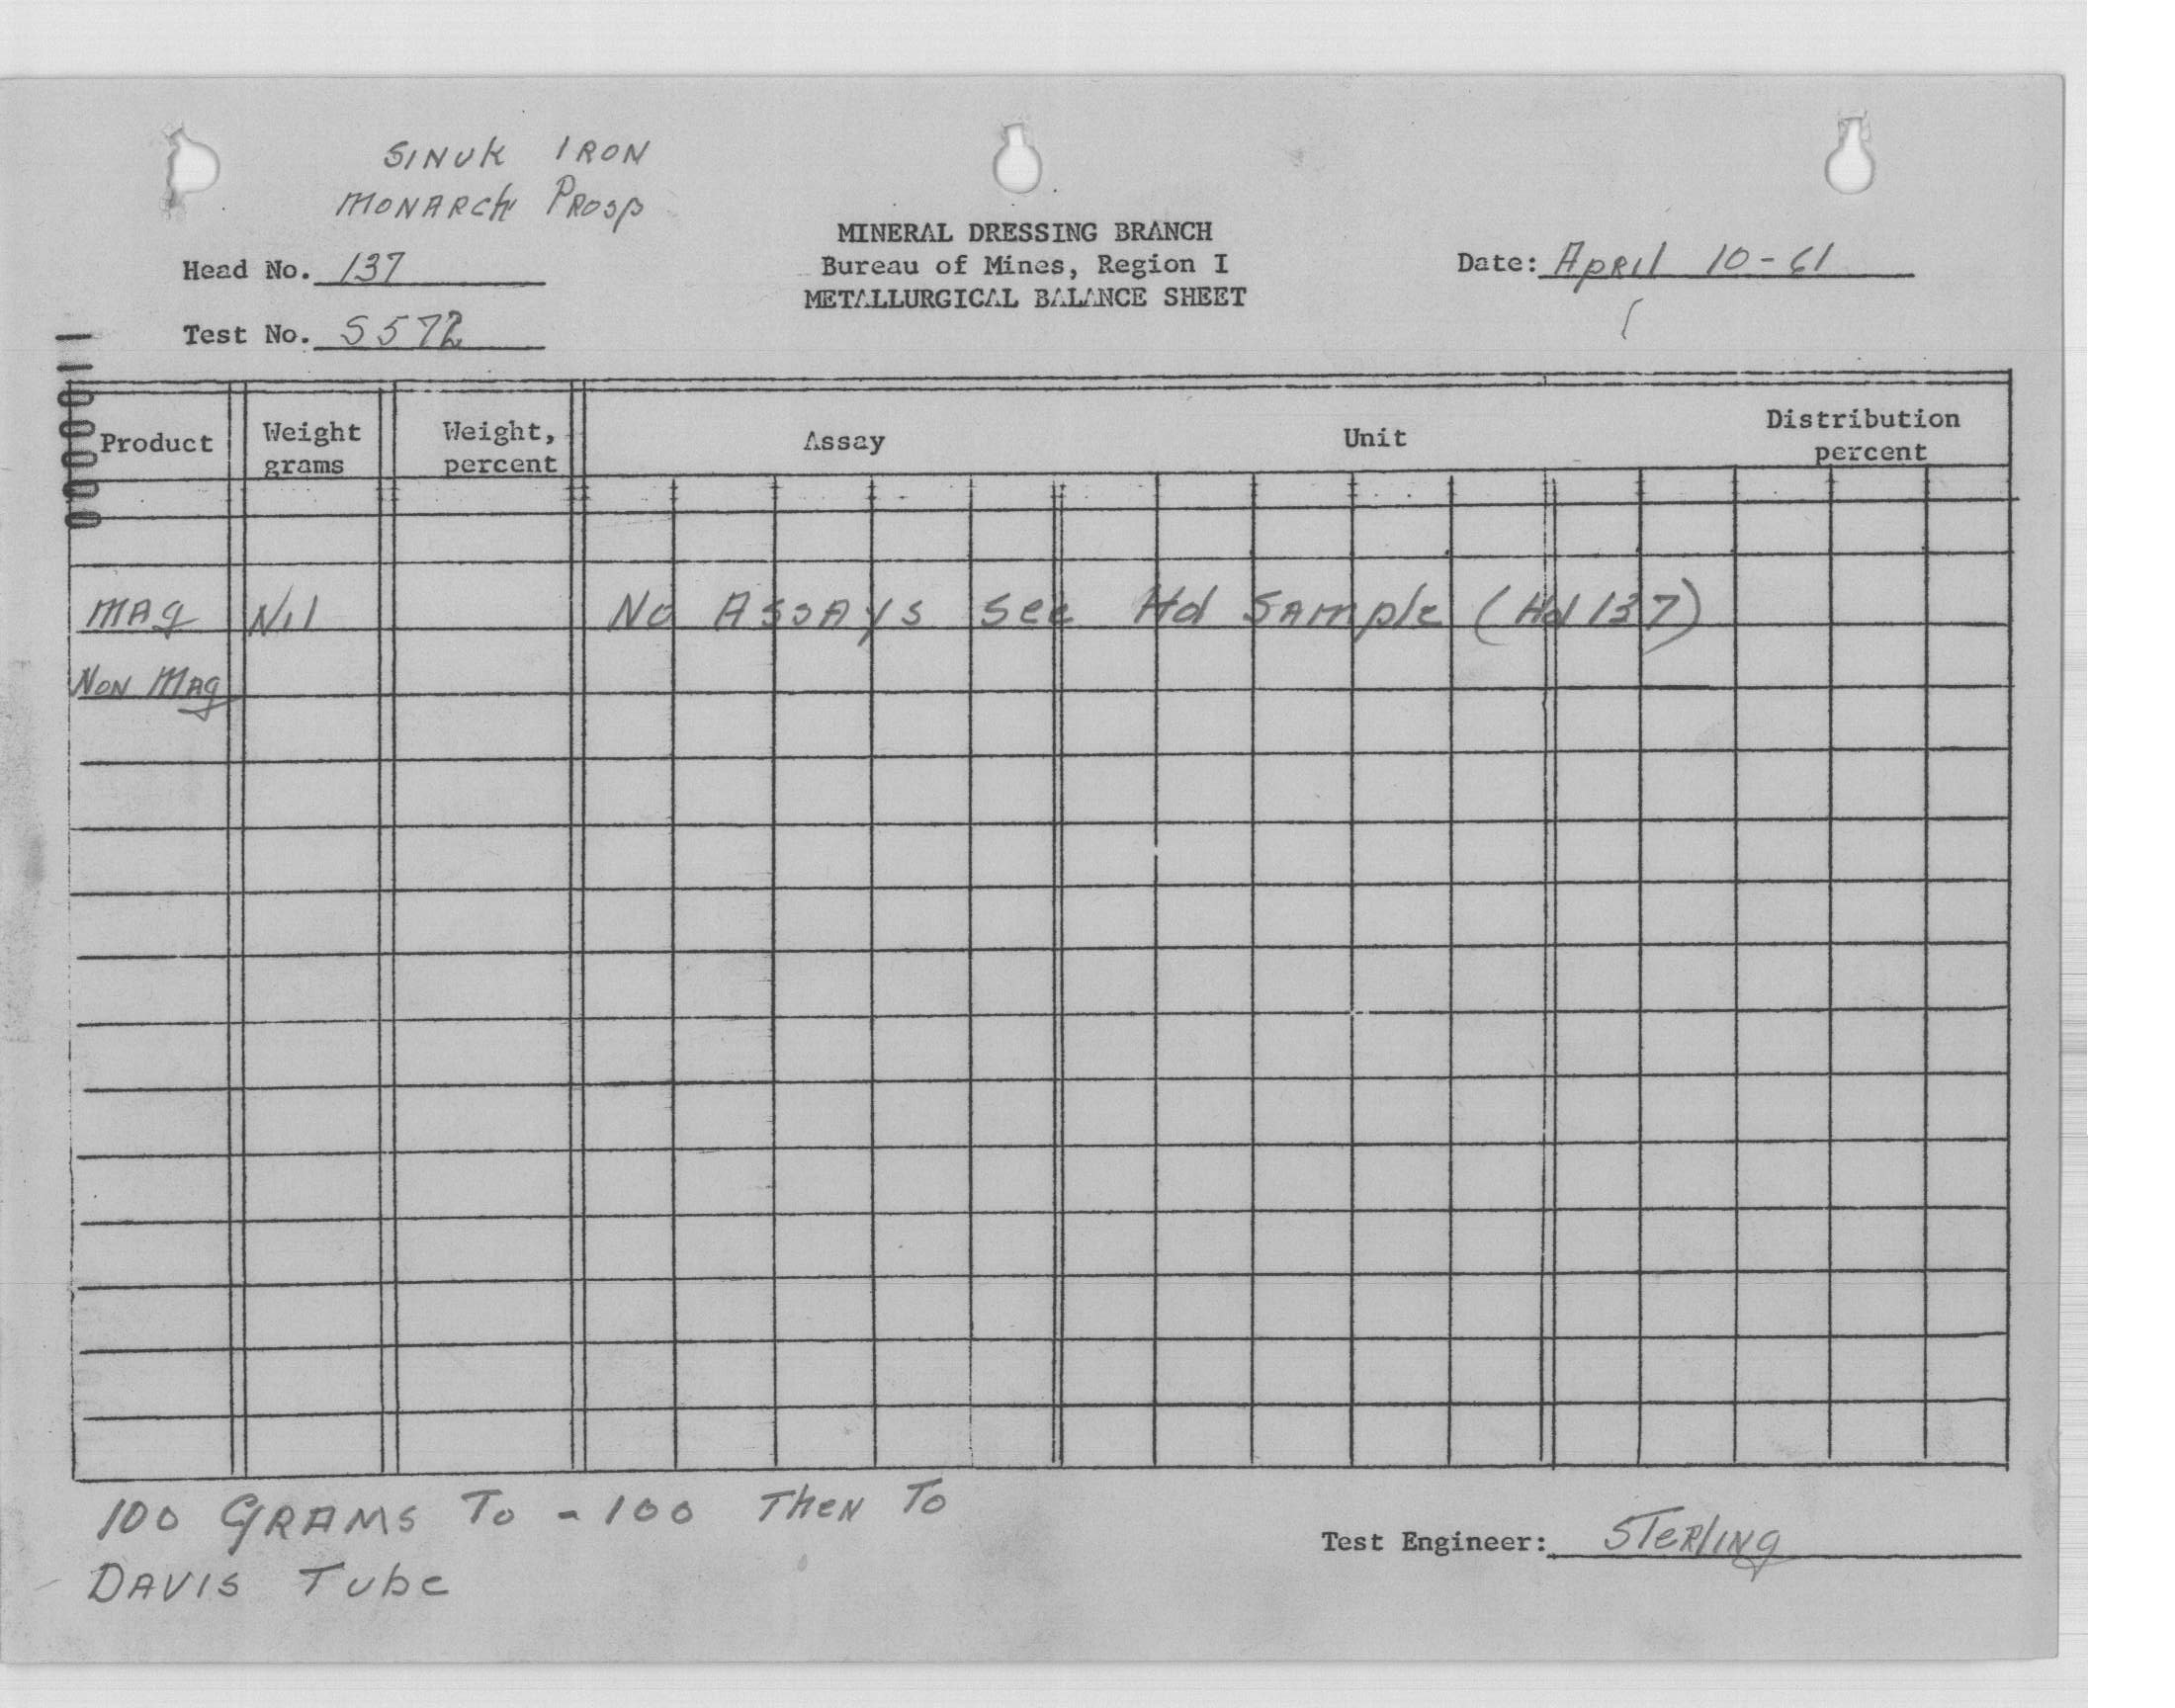 SINUK IRON
MONARCH PROSP
MINERAL DRESSING BRANCH
Bureau of Mines, Region I
METALLURGICAL BALANCE SHEET
Head No. 137
Date: APRIL 10-61
Test No. S572
Product
Weight grams
Weight, percent
Assay
Unit
Distribution percent
MAG Nil No ASSAYS See Hd SAMPLE (Hd 137)
NON MAG
100 GRAMS To -100 THEN To
DAVIS Tube
Test Engineer: STERLING